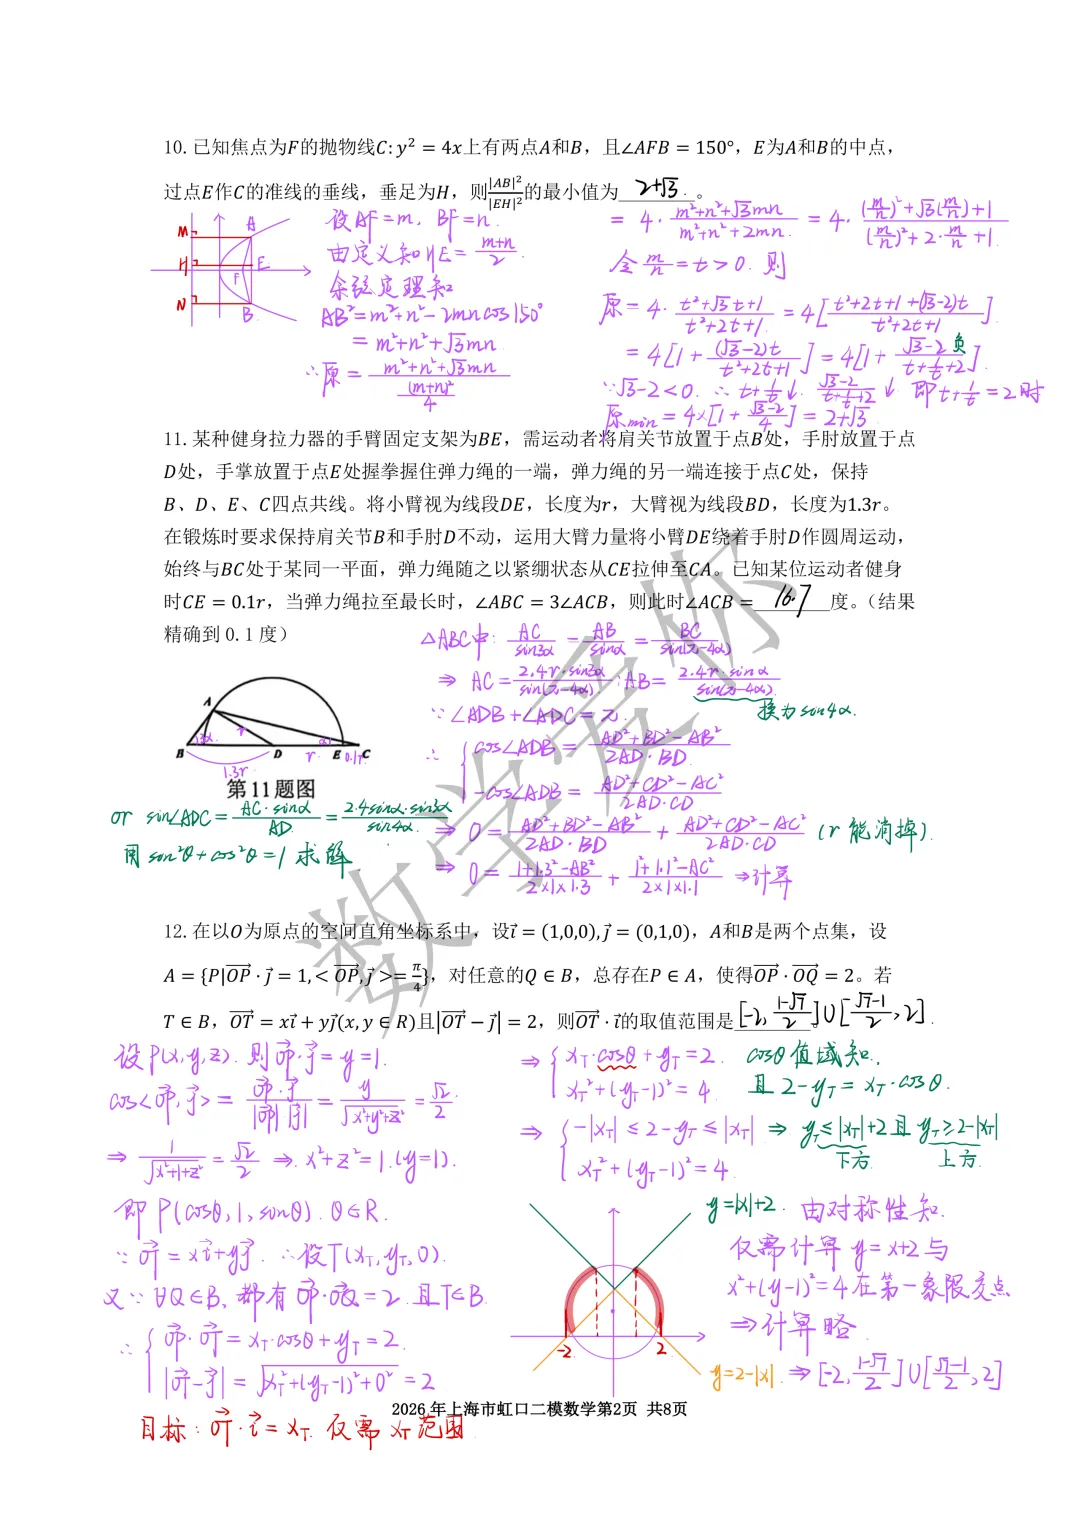 10. 已知焦点为F的抛物线C: y² = 4x上有两点A和B，且∠AFB = 150°，E为A和B的中点，
过点E作C的准线的垂线，垂足为H，则|AB|²/|EH|²的最小值为 2+√3 。
设AF=m, BF=n.
由定义知HE = (m+n)/2.
余弦定理知
AB² = m²+n²-2mncos150°
= m²+n²+√3mn
∴原 = (m²+n²+√3mn)/((m+n)²/4)
= 4·(m²+n²+√3mn)/(m²+n²+2mn) = 4·((m/n)²+√3(m/n)+1)/((m/n)²+2·m/n+1)
令 m/n = t>0. 则
原 = 4·(t²+√3t+1)/(t²+2t+1) = 4[(t²+2t+1+(√3-2)t)/(t²+2t+1)]
= 4[1+(√3-2)t/(t²+2t+1)] = 4[1+(√3-2)/(t+1/t+2)] 负
∵√3-2<0. ∴t+1/t↓. (√3-2)/(t+1/t+2)↓ 即t+1/t=2时
原min = 4×[1+(√3-2)/4] = 2+√3
M
H
N
A
E
F
B
11. 某种健身拉力器的手臂固定支架为BE，需运动者将肩关节放置于点B处，手肘放置于点
D处，手掌放置于点E处握拳握住弹力绳的一端，弹力绳的另一端连接于点C处，保持
B、D、E、C四点共线。将小臂视为线段DE，长度为r，大臂视为线段BD，长度为1.3r。
在锻炼时要求保持肩关节B和手肘D不动，运用大臂力量将小臂DE绕着手肘D作圆周运动，
始终与BC处于某同一平面，弹力绳随之以紧绷状态从CE拉伸至CA。已知某位运动者健身
时CE = 0.1r，当弹力绳拉至最长时，∠ABC = 3∠ACB，则此时∠ACB = 16.7 度。（结果
精确到 0.1 度）
△ABC中: AC/sin3α = AB/sinα = BC/sin(π-4α)
⇒ AC = 2.4r·sin3α/sin(π-4α) ; AB = 2.4r·sinα/sin(π-4α)
换为sin4α.
∵∠ADB+∠ADC=π.
∴ { cos∠ADB = (AD²+BD²-AB²)/(2AD·BD)
-cos∠ADB = (AD²+CD²-AC²)/(2AD·CD)
⇒ 0 = (AD²+BD²-AB²)/(2AD·BD) + (AD²+CD²-AC²)/(2AD·CD) (r能消掉).
⇒ 0 = (1+1.3²-AB²)/(2×1×1.3) + (1²+1.1²-AC²)/(2×1×1.1) ⇒计算
A
B 3α D r α E 0.1r C
r
1.3r
第11题图
or sin∠ADC = AC·sinα/AD = 2.4sinα·sin3α/sin4α
用sin²θ+cos²θ=1求解
12. 在以O为原点的空间直角坐标系中，设i⃗ = (1,0,0), j⃗ = (0,1,0)，A和B是两个点集，设
A = {P|OP⃗ · j⃗ = 1, < OP⃗, j⃗ >= π/4}，对任意的Q ∈ B，总存在P ∈ A，使得OP⃗ · OQ⃗ = 2。若
T ∈ B，OT⃗ = xi⃗ + yj⃗(x, y ∈ R)且|OT⃗ − j⃗| = 2，则OT⃗ · i⃗的取值范围是 [-2, (1-√7)/2]∪[(√7-1)/2, 2] 。
设P(x,y,z). 则OP⃗·j⃗=y=1.
cos<OP⃗,j⃗> = OP⃗·j⃗/|OP⃗||j⃗| = y/√(x²+y²+z²) = √2/2.
⇒ 1/√(x²+1+z²) = √2/2 ⇒ x²+z²=1.(y=1).
即P(cosθ,1,sinθ). θ∈R.
∵OT⃗=xi⃗+yj⃗. ∴设T(xT,yT,0).
又∵∀Q∈B, 都有OP⃗·OQ⃗=2. 且T∈B.
∴ { OP⃗·OT⃗ = xT·cosθ+yT=2.
|OT⃗-j⃗| = √(xT²+(yT-1)²+0²) = 2
目标: OT⃗·i⃗=xT. 仅需xT范围
⇒ { xT·cosθ+yT=2. cosθ值域知.
xT²+(yT-1)²=4. 且2-yT=xT·cosθ.
⇒ { -|xT|≤2-yT≤|xT| ⇒ yT≤|xT|+2且yT≥2-|xT|
xT²+(yT-1)²=4. 下方 上方
y=|x|+2.
-2
2
y=2-|x|.
由对称性知.
仅需计算y=x+2与
x²+(y-1)²=4在第一象限交点
⇒计算略.
⇒[-2, (1-√7)/2]∪[(√7-1)/2, 2]
2026 年上海市虹口二模数学第2页 共8页
数学爱你